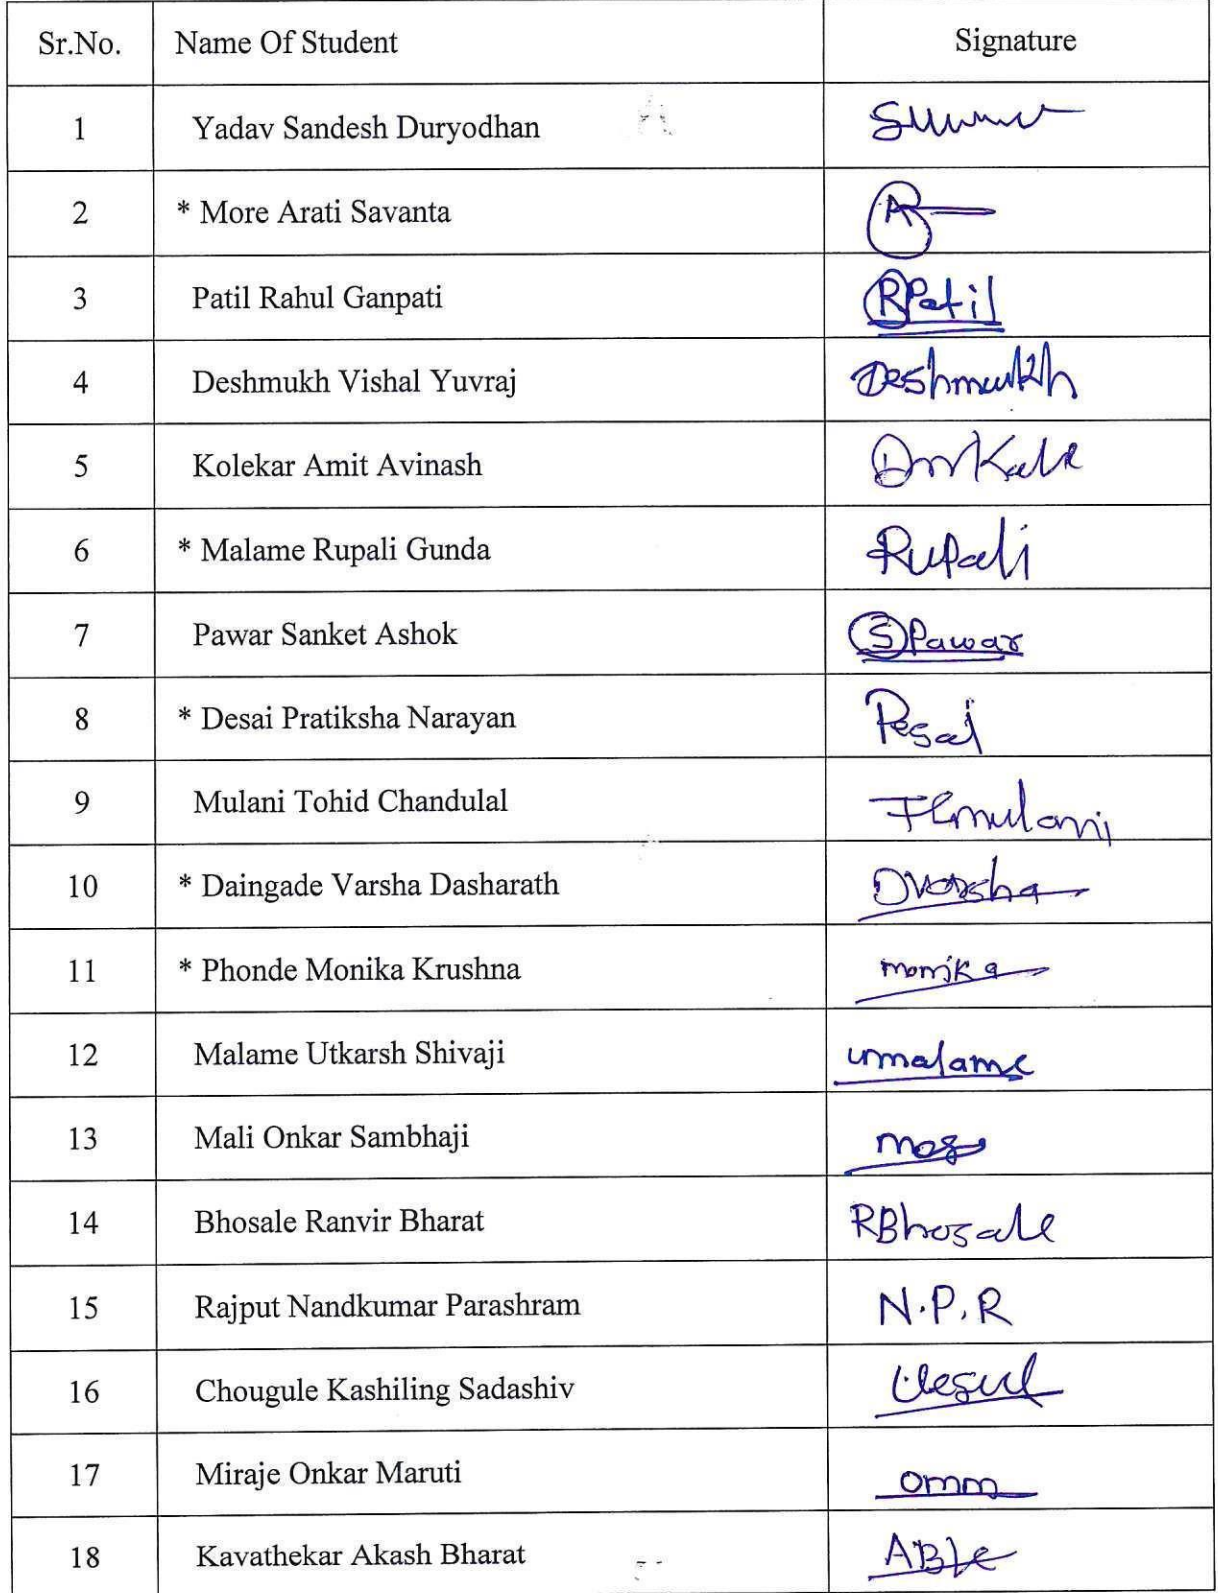 Sr.No. Name Of Student Signature
1 Yadav Sandesh Duryodhan
2 * More Arati Savanta A
3 Patil Rahul Ganpati RPatil
4 Deshmukh Vishal Yuvraj Deshmukh
5 Kolekar Amit Avinash
6 * Malame Rupali Gunda Rupali
7 Pawar Sanket Ashok SPawar
8 * Desai Pratiksha Narayan
9 Mulani Tohid Chandulal
10 * Daingade Varsha Dasharath DVarsha
11 * Phonde Monika Krushna monika
12 Malame Utkarsh Shivaji umalame
13 Mali Onkar Sambhaji
14 Bhosale Ranvir Bharat RBhosale
15 Rajput Nandkumar Parashram N.P.R
16 Chougule Kashiling Sadashiv
17 Miraje Onkar Maruti omm
18 Kavathekar Akash Bharat